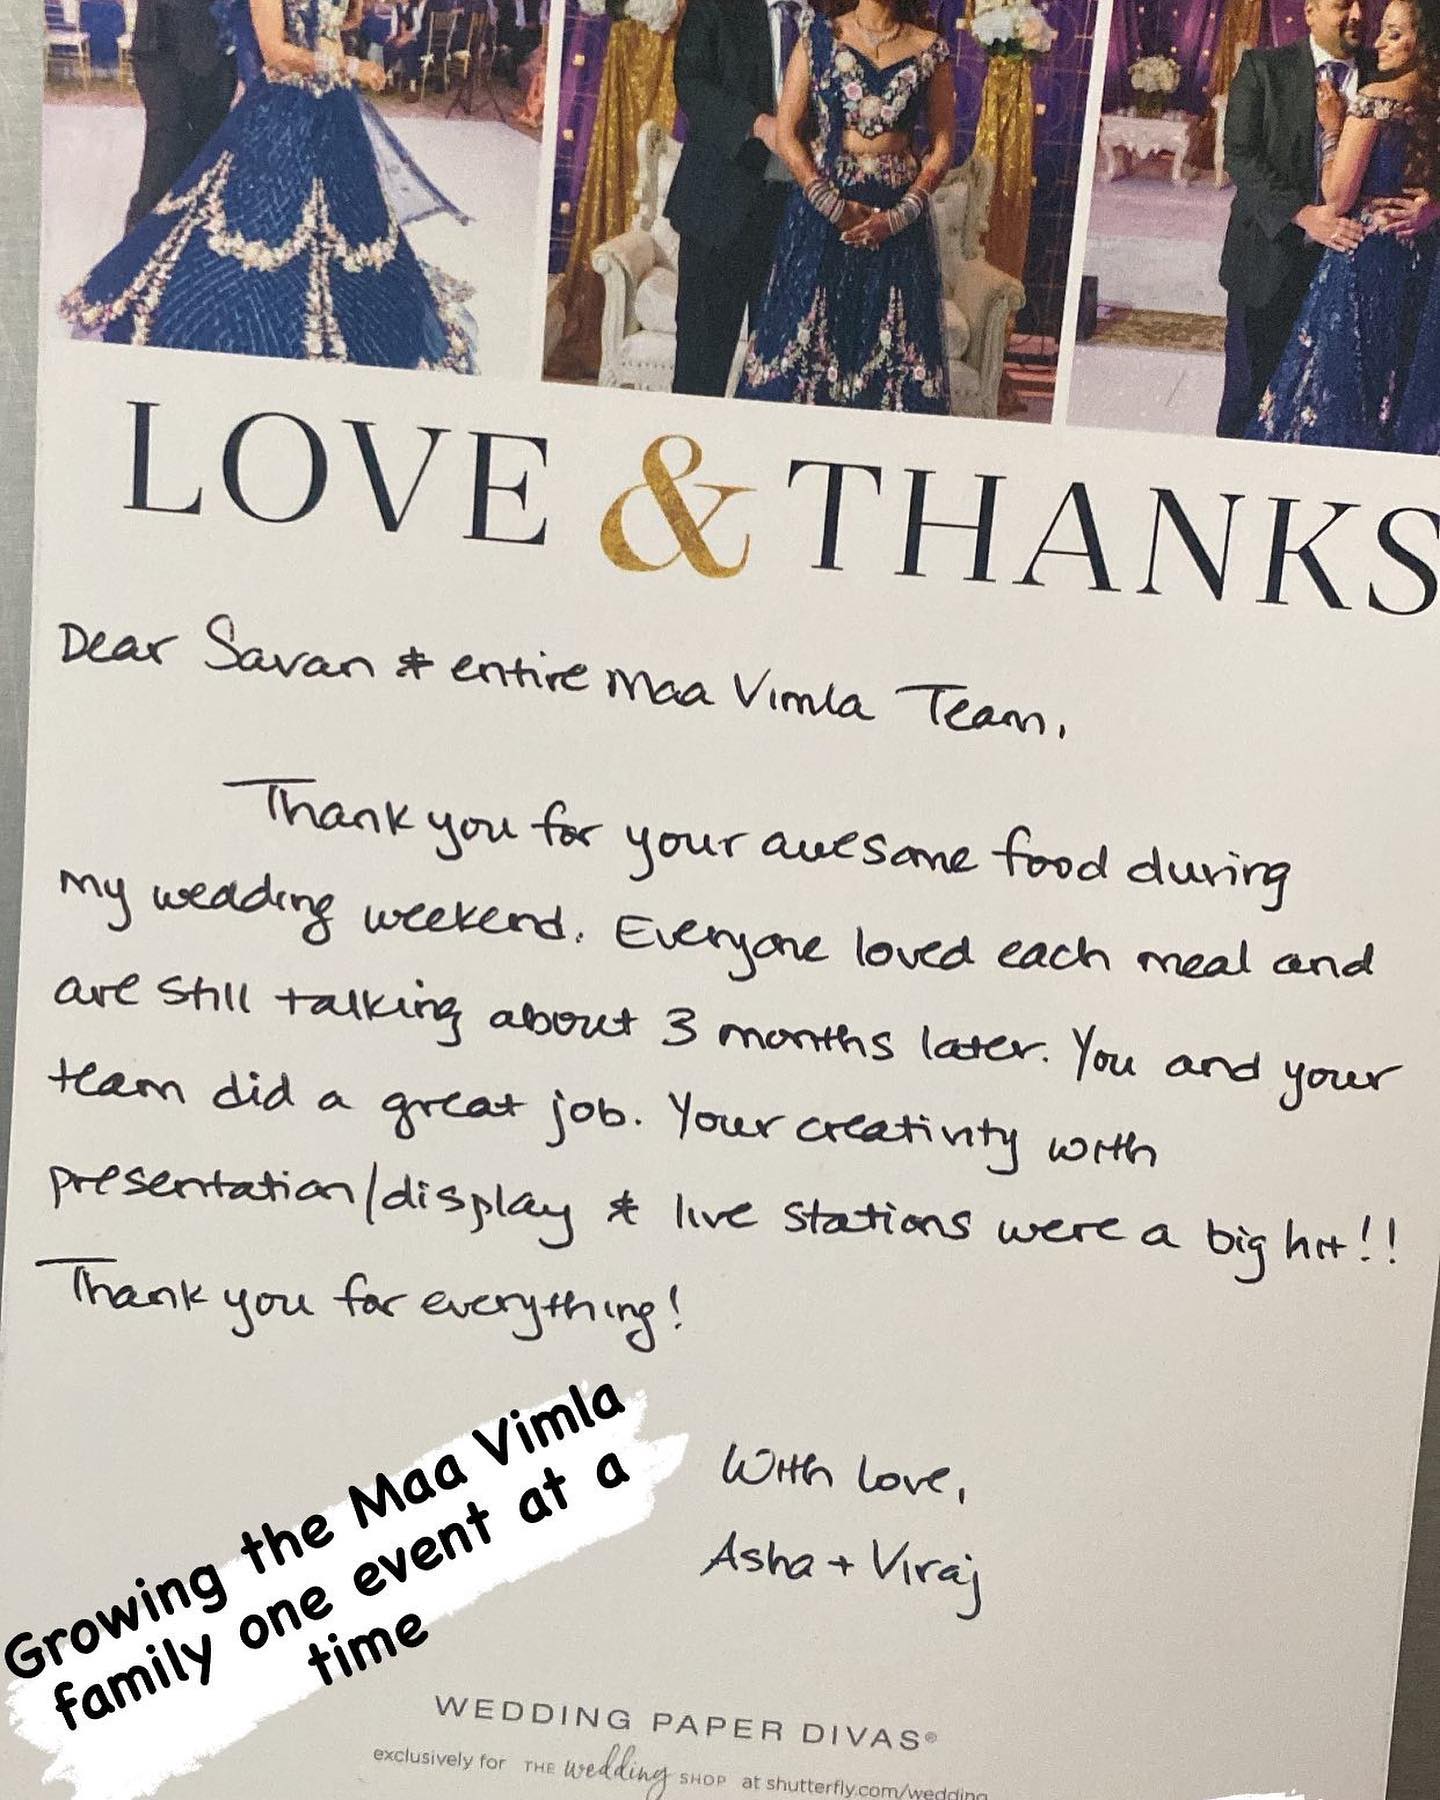 LOVE & THANKS
Dear Savan & entire Maa Vimla Team,
Thank you for your awesome food during
my wedding weekend. Everyone loved each meal and
are still talking about 3 months later. You and your
team did a great job. Your creativity with
presentation/display & live stations were a big hit!!
Thank you for everything!
With love,
Asha + Viraj
Growing the Maa Vimla
family one event at a
time
WEDDING PAPER DIVAS®
exclusively for THE wedding SHOP at shutterfly.com/wedding